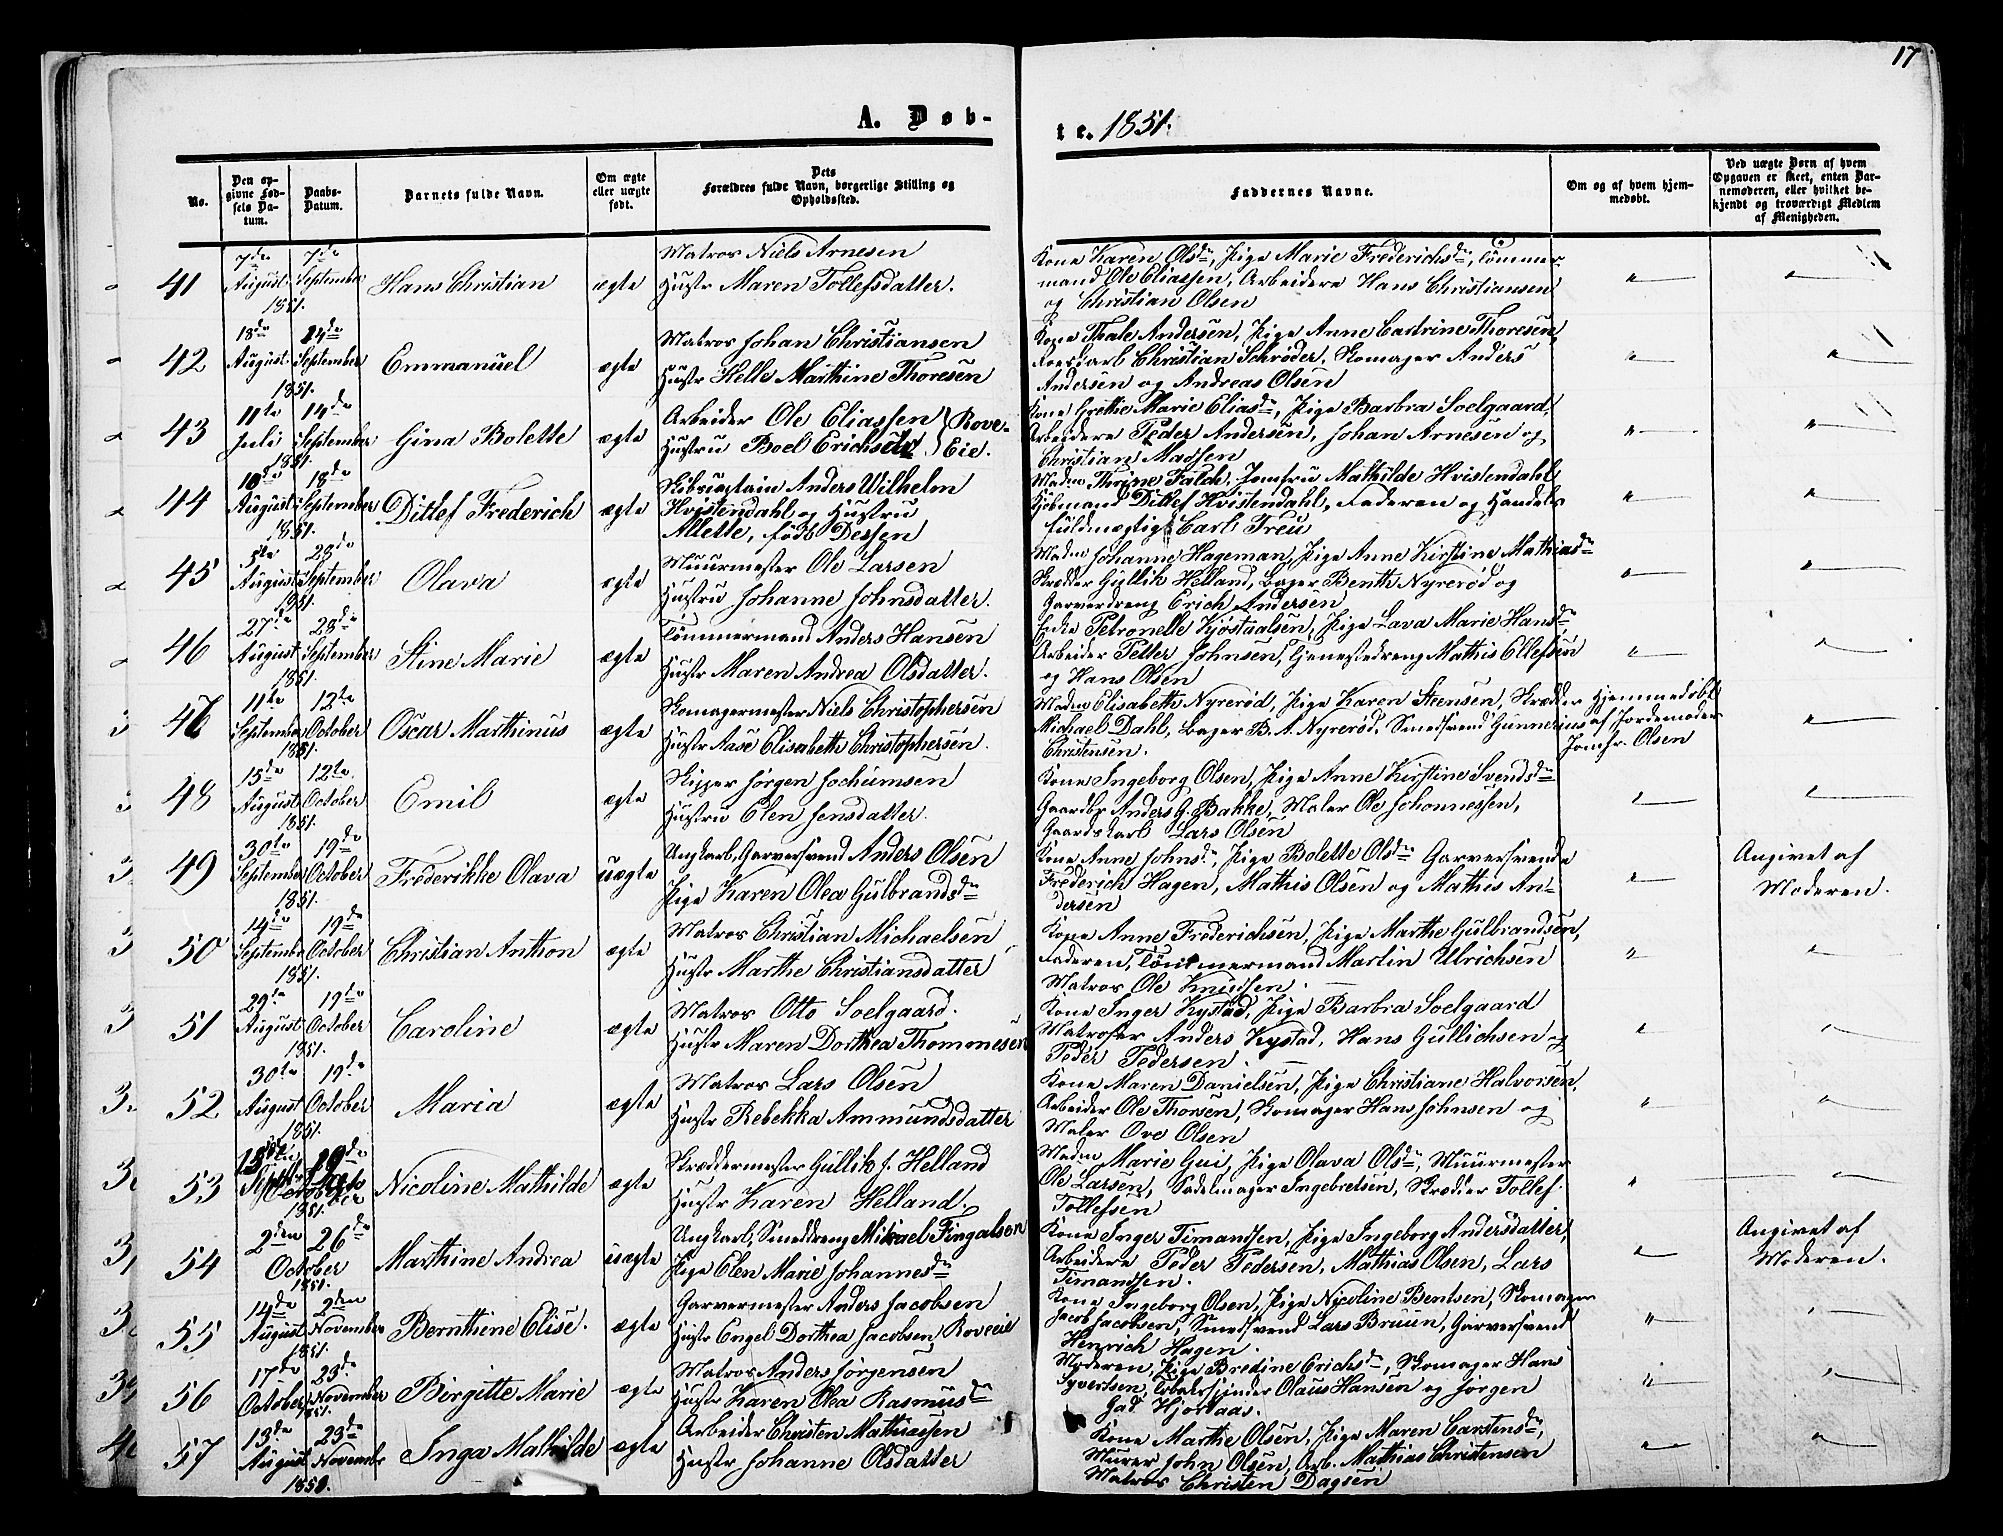 17
A. Døb-
te. 1851.
No.
Den op-
givne Fød-
sels Da-
tum.
Daabs-
Datum.
Barnets fulde Navn.
Om ægte
eller uægte
født.
Dets
Forældres fulde Navn, borgerlige Stilling og
Opholdssted.
Faddernes Navne.
Om og af hvem hjem-
medøbt.
Ved uægte Børn af hvem
Opgaven er skeet, enten Bar-
nemoderen, eller hvilket be-
kjendt og troværdigt Medlem
af Menigheden.
41
7de August 1851.
7de September
Hans Christian
ægte
Matros Niels Arnesen
Hustr Maren Tollefsdatter.
Kone Karen Olsdr, Pige Marie Frederichsdr, Tømmer-
mand Ole Eliassen, Arbeidere Hans Christiansen
og Christian Olsen
"
"
42
18de August 1851.
14de September
Emmanuel
ægte
Matros Johan Christiansen
Hustr Helle Marthine Thoresen
Kone Thale Andersen, Pige Anne Cartrine Thoresen,
Christian Schrøder, Skomager Anders
Andersen og Andreas Olsen
"
"
43
11te Juli 1851.
14de September
Gina Bolette
ægte
Arbeider Ole Eliassen } Rove-
Hustru Boel Erichsdtr } Eie.
Kone Grethe Marie Eliasdr, Pige Barbra Soelgaard,
Arbeidere Peder Andersen, Johan Arnesen og
Christian Madsen
"
"
44
10de August 1851.
18de September
Ditlef Frederich
ægte
Skibscaptain Anders Wilhelm
Hvistendahl og Hustru
Allette, født Dessen
Madm Thrine Falch, Jomfru Mathilde Hvistendahl
Kjøbmand Ditlef Hvistendahl, Faderen og Handels
fuldmægtig Carl Treu
"
"
45
5te August 1851.
28de September
Olava
ægte
Muurmester Ole Larsen
Hustru Johanne Johnsdatter.
Madm Johanne Hageman, Pige Anne Kirstine Mathiasdr
Skrædder Gullik Helland, Bager Benth Nyrerød og
Garverdreng Erich Andersen
"
"
46
27de August 1851.
28de September
Stine Marie
ægte
Tømmermand Anders Hansen
Hustr Maren Andrea Olsdatter.
Enke Petronelle Kjøstualsen, Pige Lava Marie Hansdr
Arbeider Petter Johnsen, Tjenestedreng Mathis Ellefsen
og Hans Olsen
"
"
47
11te September 1851.
12te October
Oscar Marthinus
ægte
Skomagermester Niels Christophersen
Hustr Aase Elisabeth Christophersen.
Madm Elisabeth Nyrerød, Pige Karen Steensen, Skrædder
Michael Dahl, Bager B. A. Nyrerød, Smedsvend Gunnerius
Christensen.
Hjemmedøbt
af Jordemoder
Jomfr. Olsen
"
48
15de August 1851.
12te October
Emil
ægte
Skipper Jørgen Jochumsen
Hustru Elen Jensdatter.
Kone Ingeborg Olsen, Pige Anne Kirstine Svendsdr
Gaardbr Anders G. Bakke, Maler Ole Johannessen,
Gaardskarl Lars Olsen
"
"
49
30te September 1851.
19de October
Frederikke Olava
uægte
Ungkarl, Garversvend Anders Olsen
Pige Karen Olea Gulbrandsdr
Kone Anne Johnsdr, Pige Bolette Olsdr Garversvende
Frederich Hagen, Mathis Olsen og Mathis An-
dersen
"
Angivet af
Moderen.
50
14de September 1851.
19de October
Christian Anthon
ægte
Matros Christian Michaelsen
Hustr Marthe Christiansdatter
Kone Anne Frederichsen, Pige Marthe Gulbrandsen,
Faderen, Tömmermand Martin Ulrichsen
Matros Ole Knudsen.
"
"
51
29te August 1851.
19te October
Caroline
ægte
Matros Otto Soelgaard.
Hustr Maren Dorthea Thommesen
Kone Inger Kystad, Pige Barbra Soelgaard
Matroser Anders Kystad, Hans Gullichsen og
Peder Pedersen.
"
"
52
30te August 1851.
19de October
Maria
ægte
Matros Lars Olsen
Hustr Rebekka Ammundsdatter
Kone Maren Danielsen, Pige Christiane Halvorsen,
Arbeider Ole Thorsen, Skomager Hans Johnsen og
Maler Ove Olsen
"
"
53
1851.
October
Nicoline Mathilde
ægte
Skræddermester Gullik J. Helland
Hustr Karen Helland.
Madm Marie Gui, Pige Olava Olsdr, Muurmester
Ole Larsen, Sadelmager Ingebretsen, Skrædder Tollef
Tollefsen
"
"
54
2den 26de
October
1851.
Marthine Andrea
uægte
Ungkarl, Smeddreng Mikael Fingalsen
Pige Elen Marie Johannesdr
Kone Inger Timandsen, Pige Ingeborg Andersdatter,
Arbeidere Peder Pedersen, Mathias Olsen, Lars
Timandsen.
"
Angivet af
Moderen.
55
14de August 1851.
2den November
Bernthine Elise.
ægte
Garvermester Anders Jacobsen
Hustr Engel Dorthea Jacobsen Roveeie
Kone Ingeborg Olsen, Pige Nicoline Bentsen, Skomager
Jacob Jacobsen, Smedsvend Lars Bruun, Garversvend
Henrich Hagen.
"
"
56
17de October 1851.
23de November
Birgitte Marie
ægte
Matros Anders Jørgensen
Hustr Karen Olea Rasmusdr
Moderen, Pige Bredine Erichsdr, Skomager Hans
Syvertsen, Olaus Hansen og Jørgen
Gad Hjortaas.
"
"
57
13de August 1850.
23de November
Inga Mathilde
ægte
Arbeider Christen Mathiassen
Hustr Johanne Olsdatter
Kone Marthe Olsen, Pige Maren Carstensdr,
Murer John Olsen, Arb. Mathias Christensen
Matros Christen Dagsen
"
"